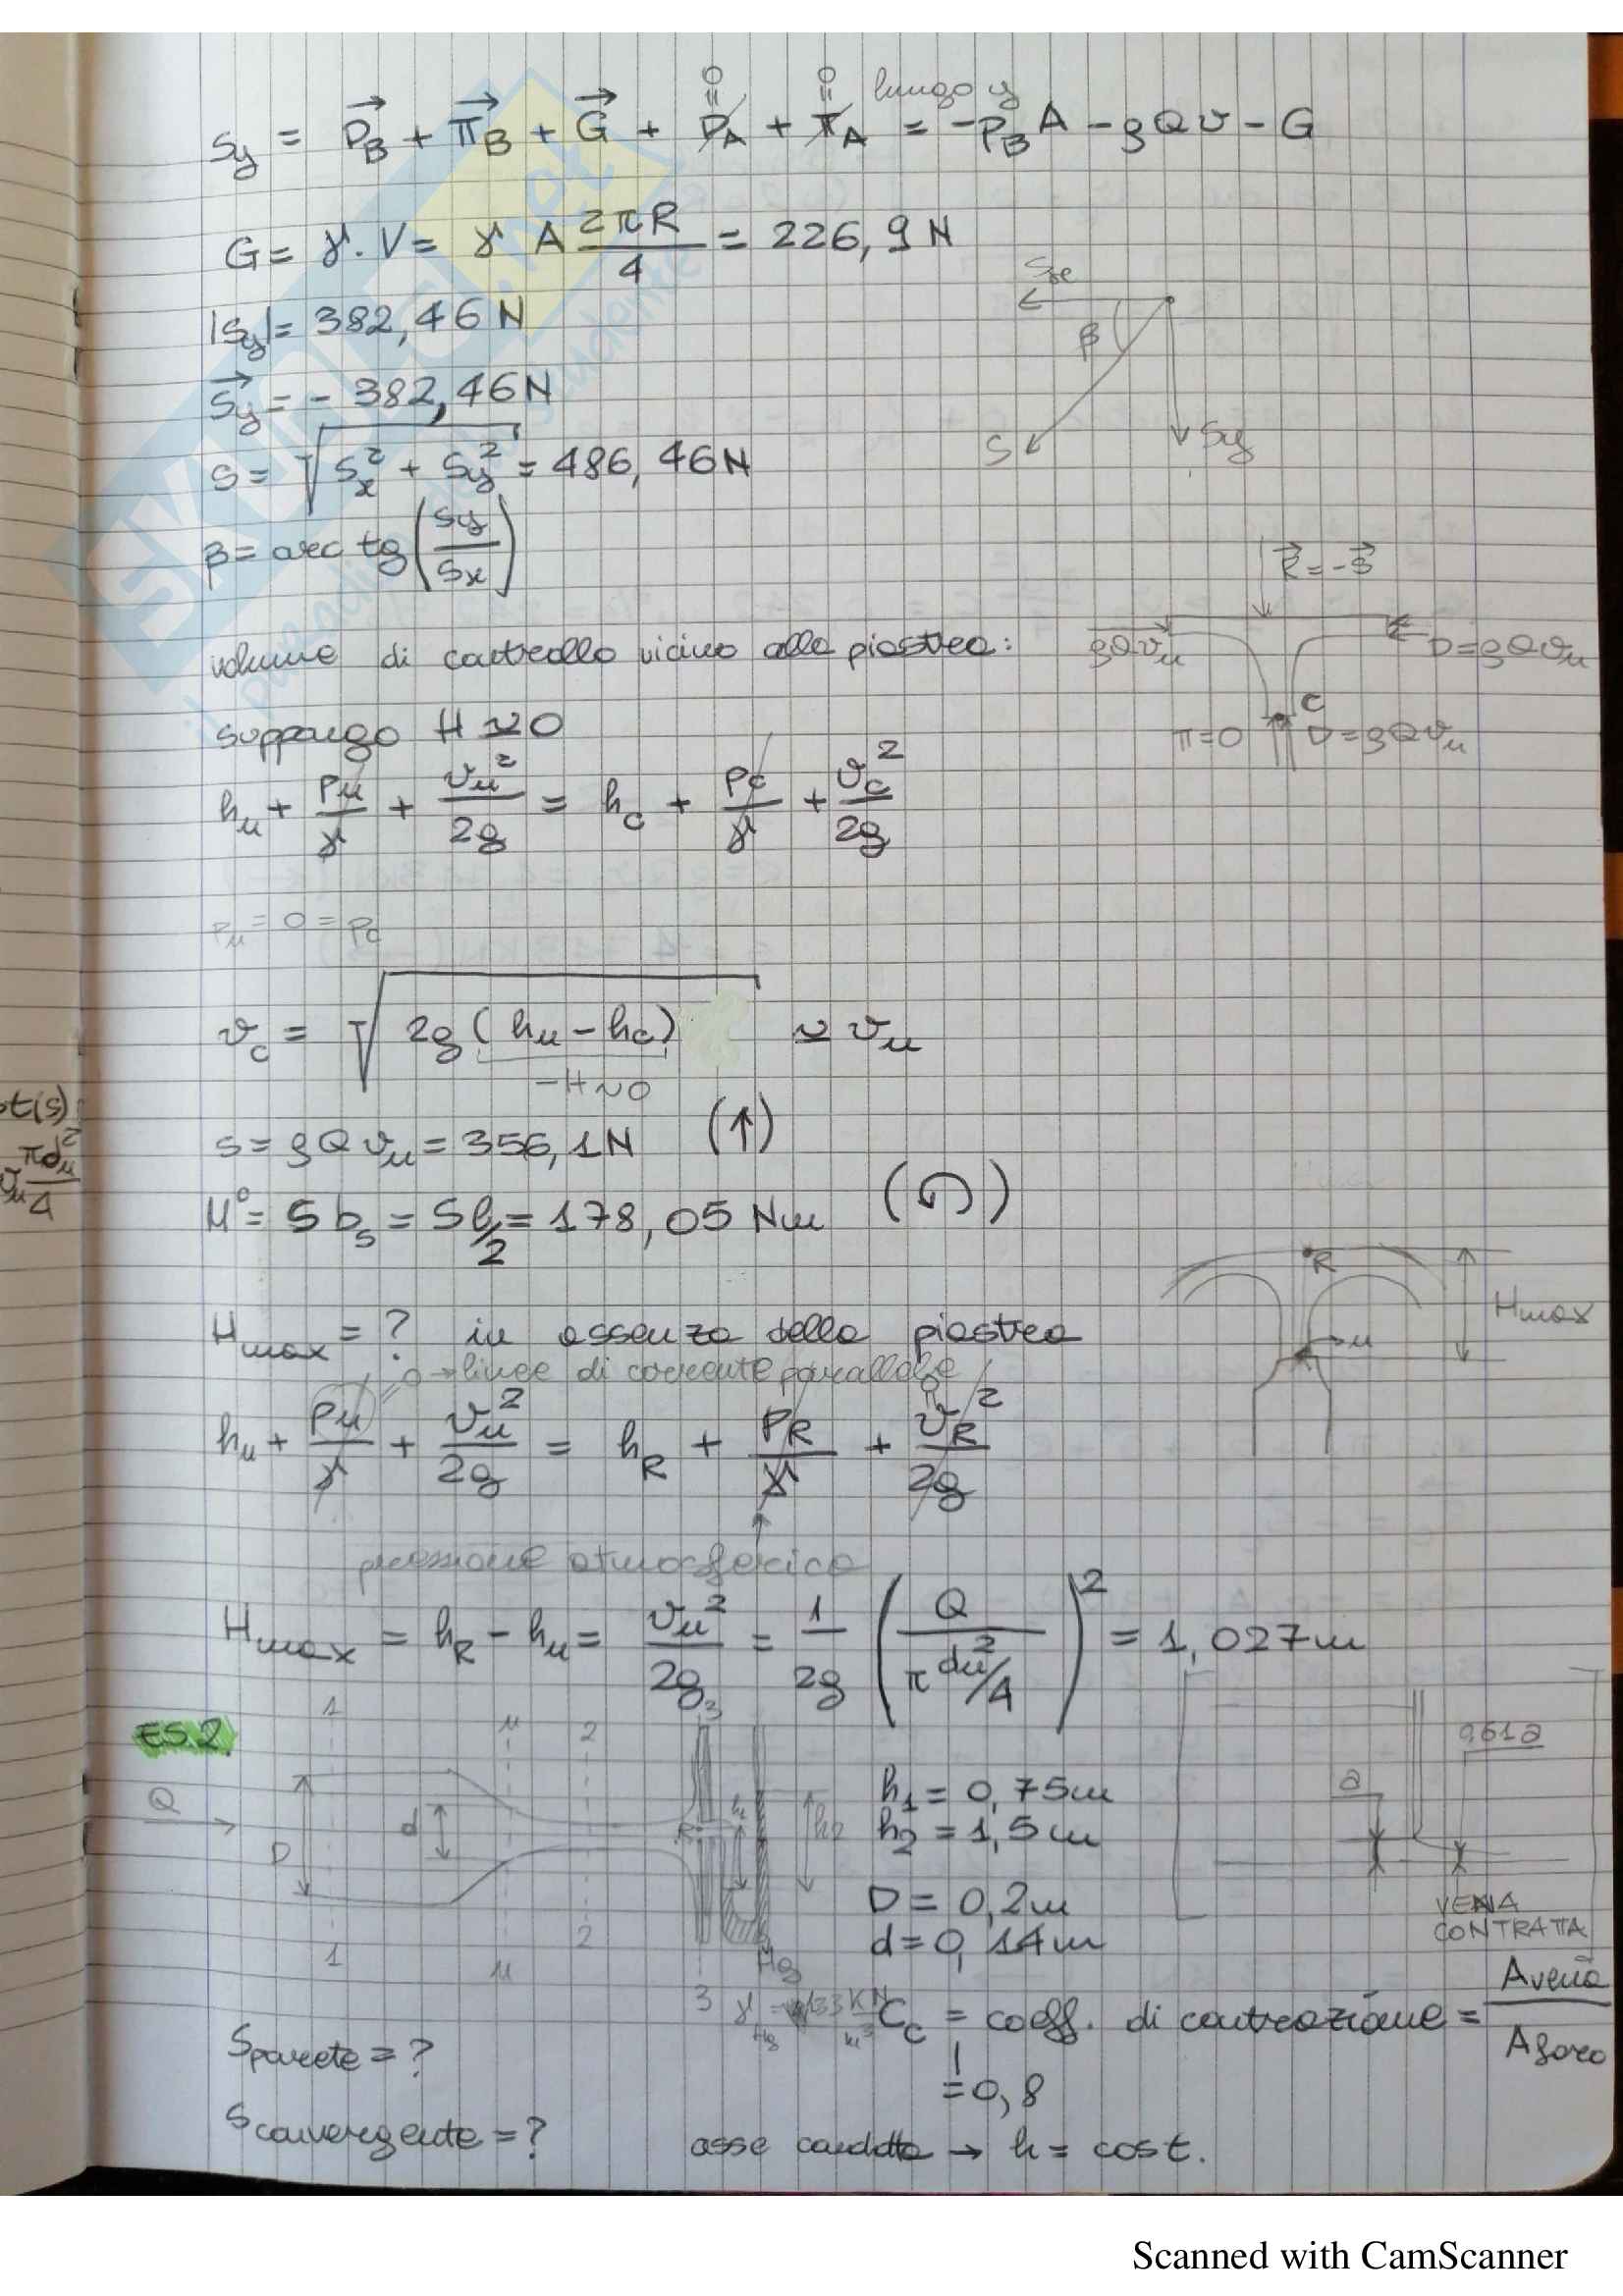 =0 =0 lungo y
Sy = P_B + π_B + G + P_A + π_A = -P_B A - ρQv - G
G = γ·V = γ A 2πR/4 = 226,9 N
|Sy| = 382,46 N
Sy = - 382,46 N
S = √(Sx² + Sy²) = 486,46 N
β = arc tg (Sy/Sx)
Sx
β
S
Sy
R = -S
volume di controllo vicino alla piastra:
ρQvu
D=ρQvu
C
π=0
D=ρQvu
suppongo H ≃ 0
hu + pu/γ + vu²/2g = hc + pc/γ + vc²/2g
pu = 0 = pc
vc = √(2g (hu - hc)) ≃ vu
-H≃0
S = ρQvu = 356,1 N (↑)
M° = S b_s = S l/2 = 178,05 Nm (↺)
ot(s)
vu πdu²/4
R
Hmax
u
Hmax = ? in assenza della piastra
=0 → linee di corrente parallele
hu + pu/γ + vu²/2g = hR + pR/γ + vR²/2g
pressione atmosferica
Hmax = hR - hu = vu²/2g = 1/2g (Q/(π du²/4))² = 1,027 m
ES.2
1 u 2 3
Q
D
d
R
h1
h2
1 u 2 3
Hg
h1 = 0,75 m
h2 = 1,5 m
D = 0,2 m
d = 0,14 m
a
0,61a
VENA
CONTRATTA
γHg = 133 KN/m³
Cc = coeff. di contrazione = Avena/Aforo
= 0,8
Sparete = ?
Sconvergente = ?
asse condotta → h = cost.
SKUOLA.net
il paradiso dello studente
Scanned with CamScanner